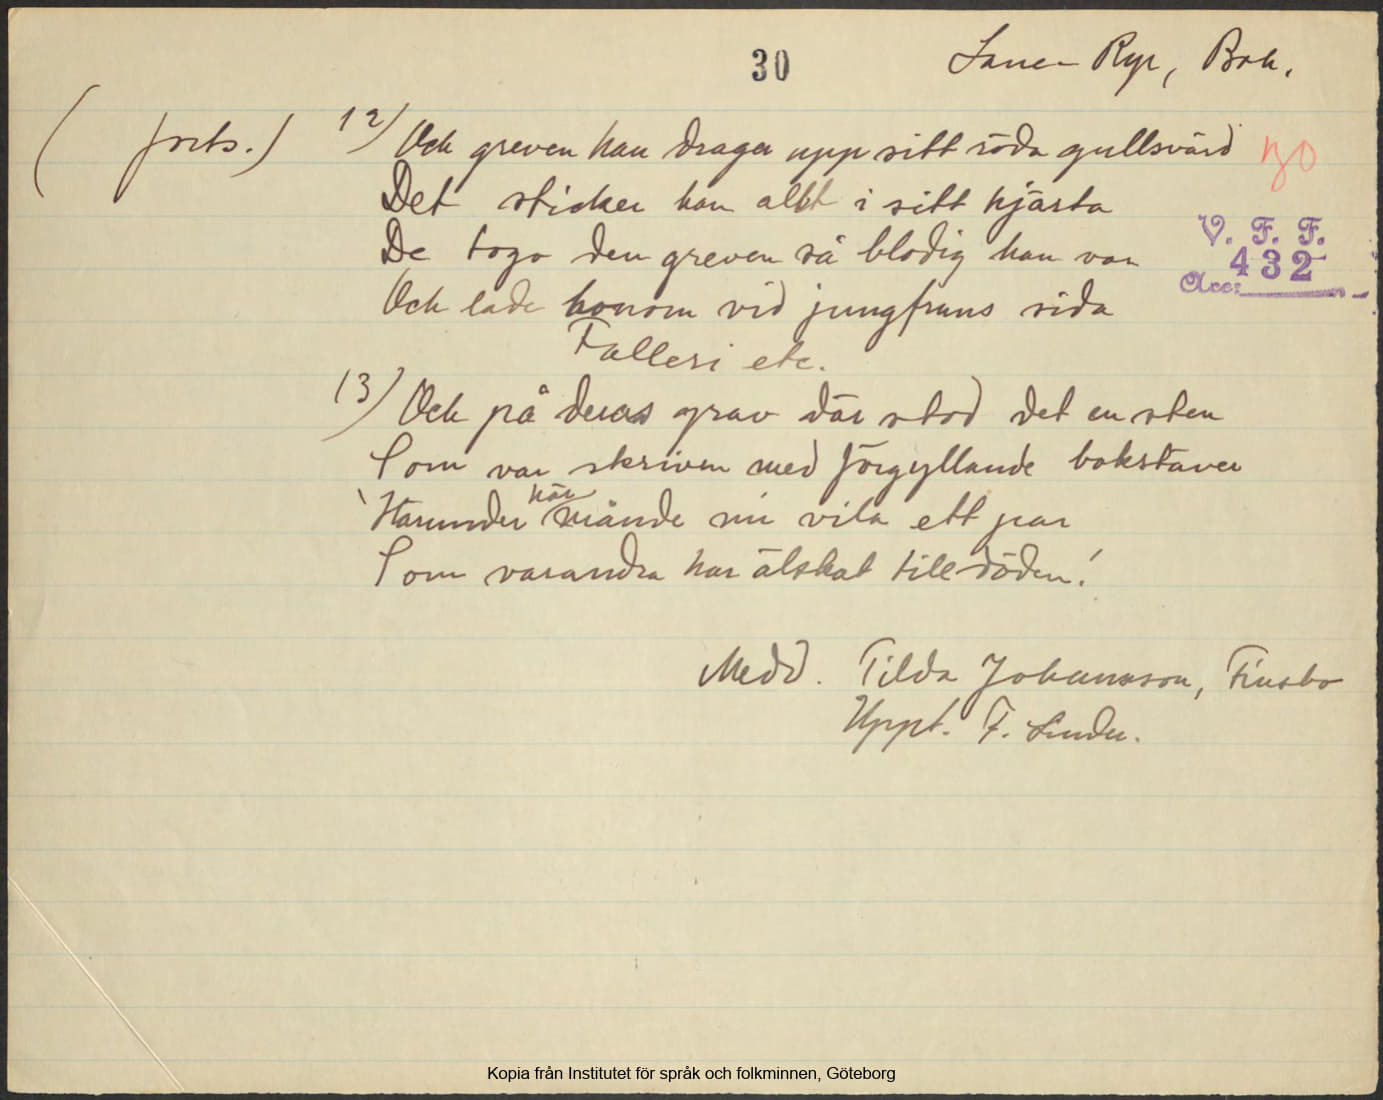 30
Lane-Ryr, Boh.
(forts.) 12) Och greven han drager upp sitt röda gullsvärd
Det sticker han allt i sitt hjärta
De togo den greven så blodig han var
Och lade honom vid jungfruns sida
Falleri etc.
13) Och på deras grav där stod det en sten
Som var skriven med förgyllande bokstäver
Härunder här månde nu vila ett par
Som varandra har älskat till döden!
V. F. F.
432
Acc:
Medd. Tilda Johansson, Finsbo
Uppt. F. Linder.
Kopia från Institutet för språk och folkminnen, Göteborg